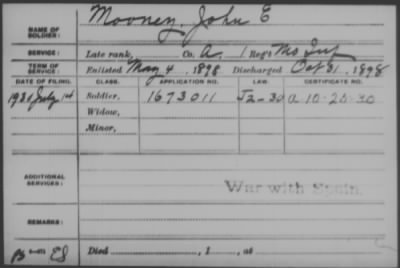 NAME OF SOLDIER: Mooney, John E
SERVICE: Late rank, Co. A, 1 Reg't Mo Inf
TERM OF SERVICE: Enlisted May 4, 1898 Discharged Oct 31, 1898
DATE OF FILING. CLASS. APPLICATION NO. LAW. CERTIFICATE NO.
1930 July 1st Soldier, 1673011 J2-30 a 10-25-30
Widow,
Minor,
ADDITIONAL SERVICES: War with Spain.
REMARKS:
Died , 1 , at